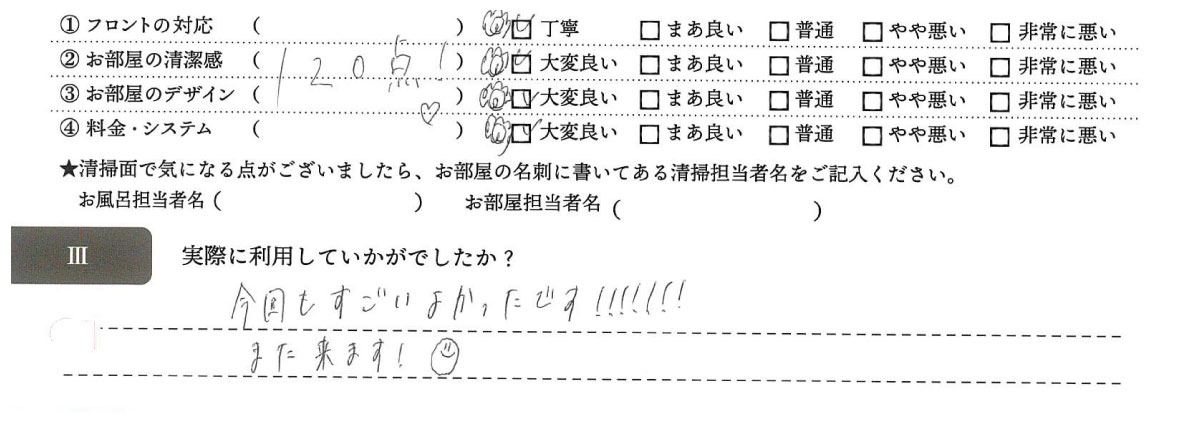 ① フロントの対応 ( ) ☑ 丁寧 □ まあ良い □ 普通 □ やや悪い □ 非常に悪い
② お部屋の清潔感 ( 120点! ) ☑ 大変良い □ まあ良い □ 普通 □ やや悪い □ 非常に悪い
③ お部屋のデザイン ( ♡ ) ☑ 大変良い □ まあ良い □ 普通 □ やや悪い □ 非常に悪い
④ 料金・システム ( ) ☑ 大変良い □ まあ良い □ 普通 □ やや悪い □ 非常に悪い
★清掃面で気になる点がございましたら、お部屋の名刺に書いてある清掃担当者名をご記入ください。
お風呂担当者名 ( ) お部屋担当者名 ( )
Ⅲ 実際に利用していかがでしたか？
今回もすごいよかったです!!!!!!!
また来ます! ☺